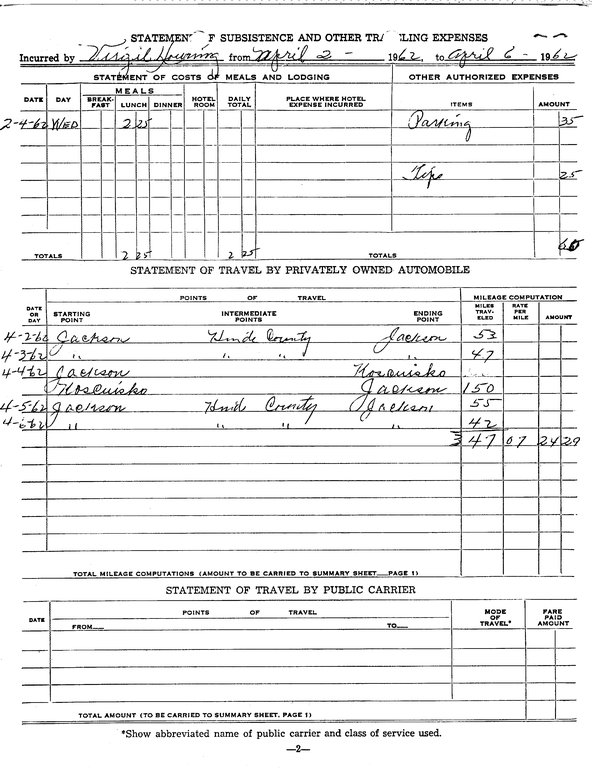 STATEMENT OF SUBSISTENCE AND OTHER TRAVELING EXPENSES
Incurred by Virgil Downing from April 2 - 1962, to April 6 - 1962
STATEMENT OF COSTS OF MEALS AND LODGING OTHER AUTHORIZED EXPENSES
DATE DAY MEALS BREAK-FAST LUNCH DINNER HOTEL ROOM DAILY TOTAL PLACE WHERE HOTEL EXPENSE INCURRED ITEMS AMOUNT
2-4-62 WED 2 25 Parking 35
Tips 25
TOTALS 2 25 2 25 TOTALS 60
STATEMENT OF TRAVEL BY PRIVATELY OWNED AUTOMOBILE
POINTS OF TRAVEL MILEAGE COMPUTATION
DATE OR DAY STARTING POINT INTERMEDIATE POINTS ENDING POINT MILES TRAV-ELED RATE PER MILE AMOUNT
4-2-62 Jackson Hinds County Jackson 53
4-3-62 " " " " 47
4-4-62 Jackson Kosciusko
Kosciusko Jackson 150
4-5-62 Jackson Hinds County Jackson 55
4-6-62 " " " " 42
347 07 24 29
TOTAL MILEAGE COMPUTATIONS (AMOUNT TO BE CARRIED TO SUMMARY SHEET—PAGE 1)
STATEMENT OF TRAVEL BY PUBLIC CARRIER
DATE POINTS OF TRAVEL FROM— TO— MODE OF TRAVEL* FARE PAID AMOUNT
TOTAL AMOUNT (TO BE CARRIED TO SUMMARY SHEET, PAGE 1)
*Show abbreviated name of public carrier and class of service used.
—2—